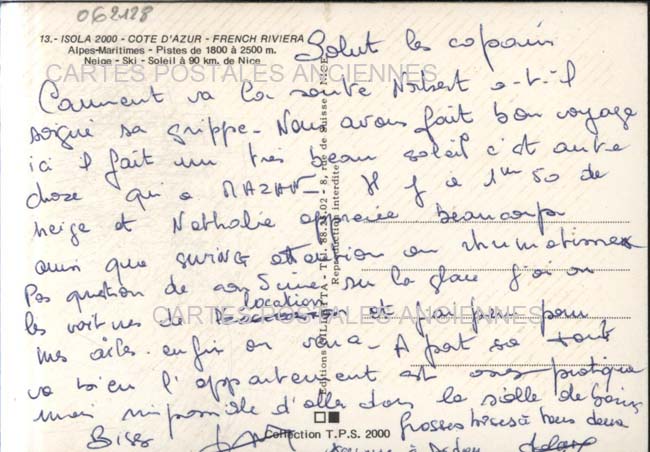 062128
13.- ISOLA 2000 - COTE D'AZUR - FRENCH RIVIERA
Alpes-Maritimes - Pistes de 1800 à 2500 m.
Neige - Ski - Soleil à 90 km. de Nice
CARTES POSTALES ANCIENNES
Salut les copains
Comment va la santé Norbert a-t-il
soigné sa grippe - Nous avons fait bon voyage
ici il fait un très beau soleil c'est autre
chose qu'a MAZAN - Il y a 1m 50 de
neige et Nathalie apprécie beaucoup
ainsi que attention au rhumatisme
Pas question de sur la glace j'ai eu
les voitures de location et j'ai peur pour
CARTES POSTALES ANCIENNES
mes ailes enfin on verra - A part sa tout
va bien l'appartement est pratique
mais impossible d'aller dans la salle de bains
Grosses bises à vous deux
Bises
Collection T.P.S. 2000
rue de Suisse - NICE
Reproduction interdite